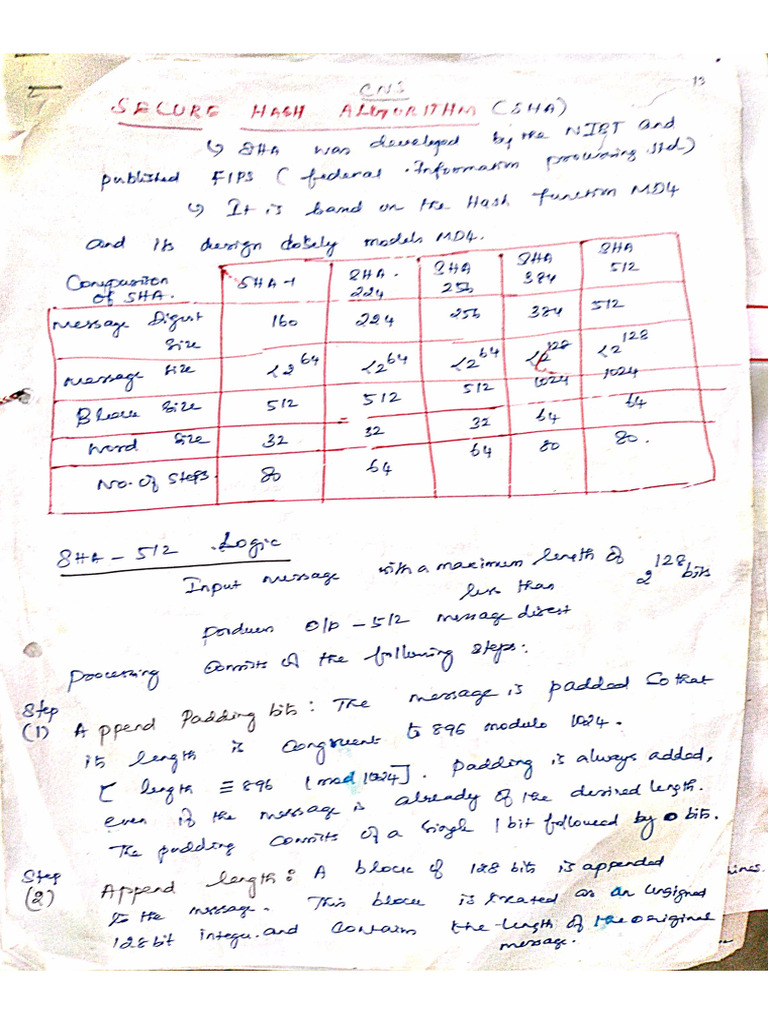 CNS
13
SECURE HASH ALGORITHM (SHA)
↳ SHA was developed by the NIST and
published FIPS (federal Information processing Std)
↳ It is based on the Hash function MD4
and its design closely models MD4.
Comparison of SHA. SHA-1 SHA-224 SHA 256 SHA 384 SHA 512
Message Digest Size 160 224 256 384 512
Message Size <2^64 <2^64 <2^64 <2^128 <2^128
Block Size 512 512 512 1024 1024
Word Size 32 32 32 64 64
No. of Steps. 80 64 64 80 80.
SHA - 512 Logic
Input message with a maximum length of
less than 2^128 bits
produces O/P - 512 message digest
processing consists of the following steps:
Step
(1) Append Padding bits: The message is padded so that
its length is congruent to 896 modulo 1024.
[ length ≡ 896 [mod 1024]. padding is always added,
even if the message is already of the desired length.
The padding consists of a single 1 bit followed by 0 bits.
Step
(2) Append length: A block of 128 bits is appended
to the message. This block is treated as an unsigned
128 bit integer. and contains the length of the original
message.
ines.